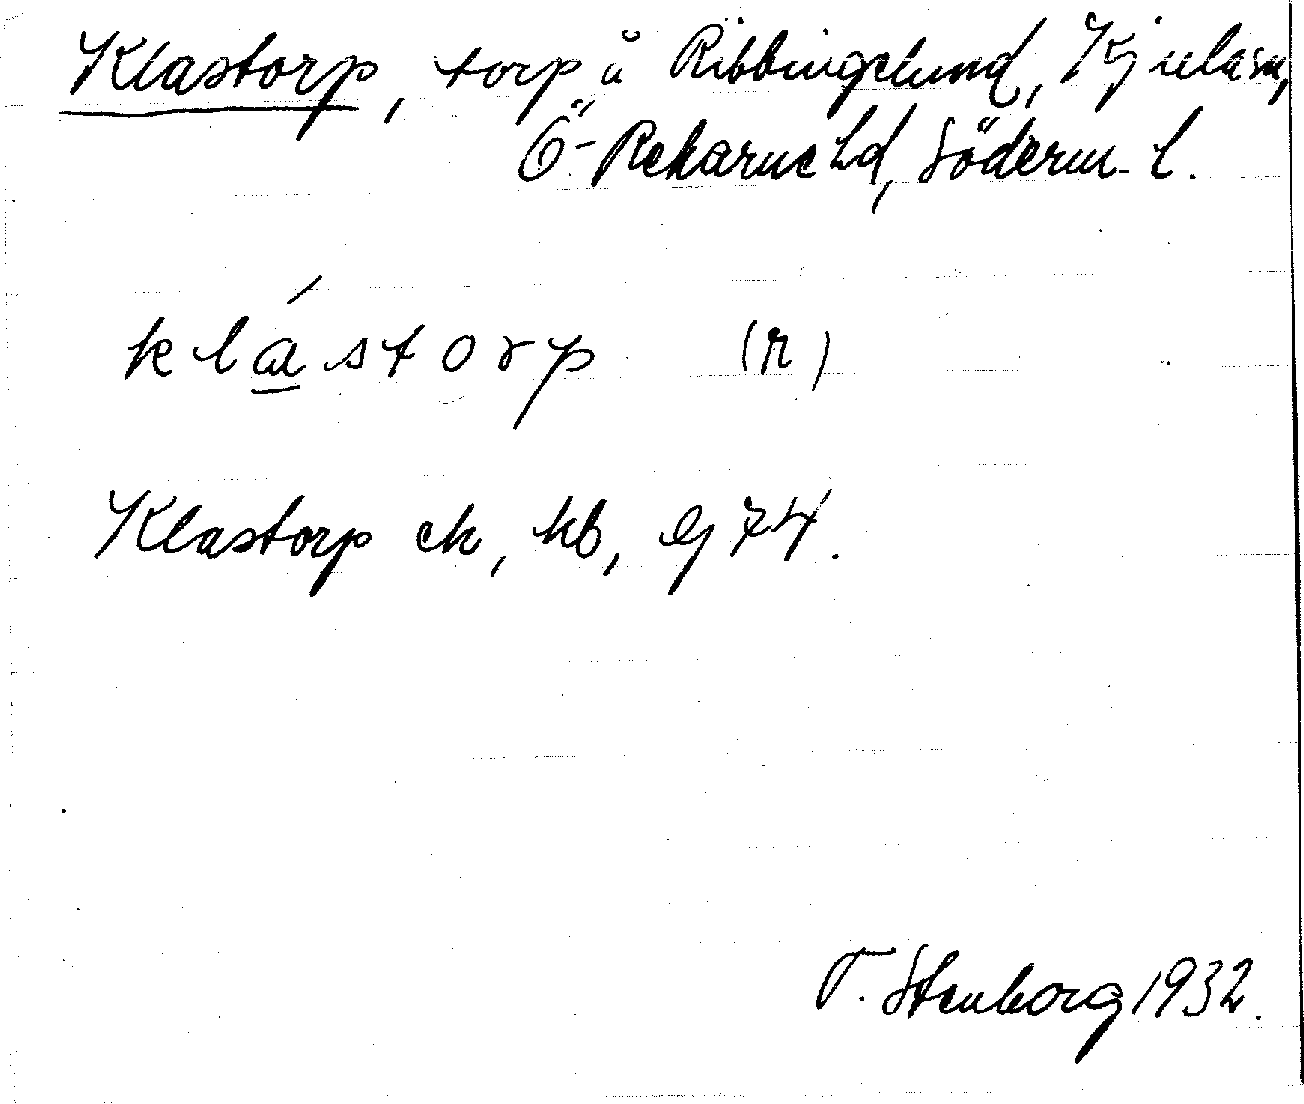 Klastorp, torp u Ribbingelund, Kjula sn,
Ö-Rekarne hd, Söderm. l.
klástorp (r)
Klastorp ek, kb, Gj 74.
T. Stenborg 1932.